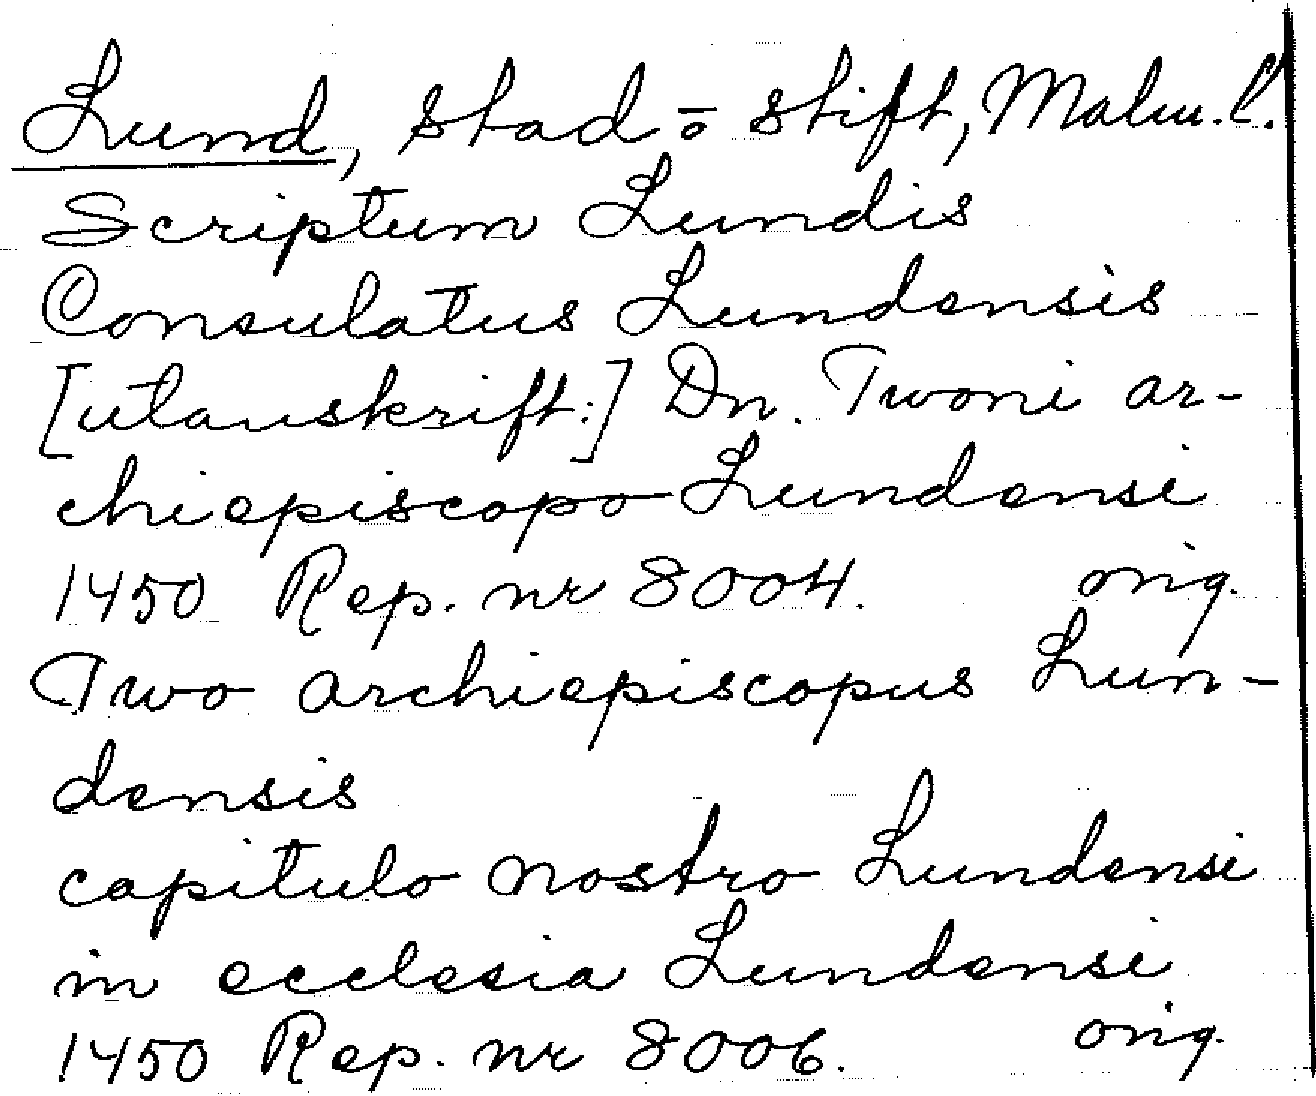 Lund, stad o stift, Malm. l.
Scriptum Lundis
Consulatus Lundensis
[utanskrift:] Dn. Twoni ar-
chiepiscopo Lundensi
1450 Rep. nr 8004. orig.
Two archiepiscopus Lun-
densis
capitulo nostro Lundensi
in ecclesia Lundensi
1450 Rep. nr 8006. orig.